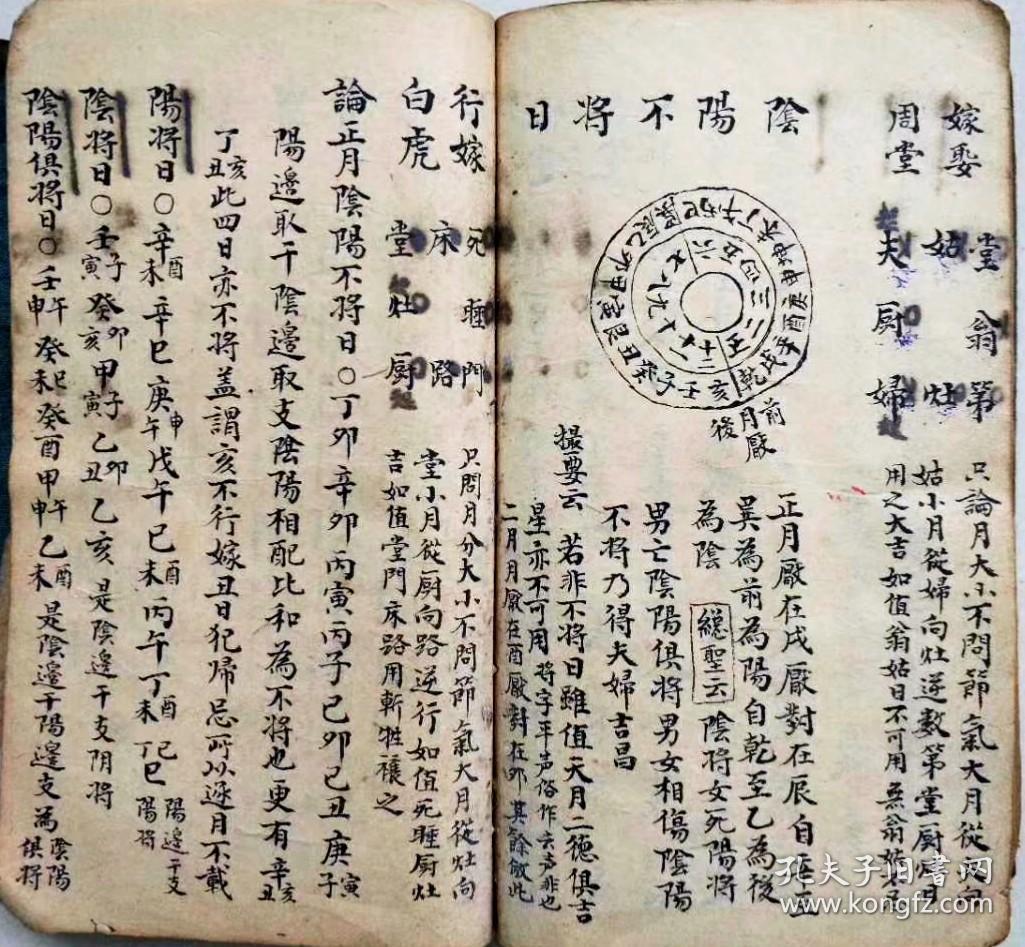 嫁娶周堂
堂翁第
姑灶
夫厨婦
只論月大小不問節氣大月從夫向
姑小月從婦向灶逆數第堂厨灶日
用之大吉如值翁姑日不可用無翁姑
陰陽不將日
乾亥壬子癸丑艮寅甲卯乙辰巽巳丙午丁未坤申庚酉辛戌
正二三四五六七八九十十一十二
前月厭後
正月厭在戌厭對在辰自辛至
巽為前為陽自乾至乙為後
為陰 總聖云 陰將女死陽將
男亡陰陽俱將男女相傷陰陽
不將乃得夫婦吉昌
撮要云 若非不將日雖值天月二德俱吉
星亦不可用 將字平声俗作去声非也
二月月厭在酉厭對在卯其餘倣此
行嫁白虎
死睡門
床路
堂灶厨
只問月分大小不問節氣大月從灶向
堂小月從厨向路逆行如值死睡厨灶
吉如值堂門床路用斬牲禳之
論正月陰陽不將日〇丁卯辛卯丙寅丙子己卯己丑庚寅子
陽邊取干陰邊取支陰陽相配比和為不將也更有辛亥丑
丁亥丑此四日亦不將盖謂亥不行嫁丑日犯歸忌所以逐月不載
陽將日〇辛酉未辛巳庚申午戊午己酉未丙午丁酉未丁巳己巳 陽邊干支陽將
陰將日〇壬子寅癸卯亥甲子寅乙卯丑乙亥是陰邊干支阴將
陰陽俱將日〇壬午申癸巳未癸酉甲午申乙酉未是陰邊干陽邊支為陰陽俱將
孔夫子旧书网
www.kongfz.com